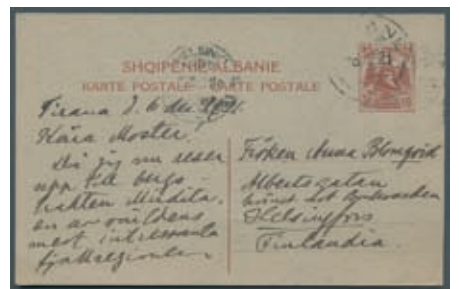 SHQIPENIE ALBANIE
KARTE POSTALE KARTE POSTALE
Tirana d. 6 dec. 1921.
Kära Moster.
Då jag nu reser
upp till bergs-
trakten Mirdita,
en av världens
mest intressanta
fjällregioner.
Fröken Anna Blomqvist
Albertsgatan
Helsingfors
Finlandia.